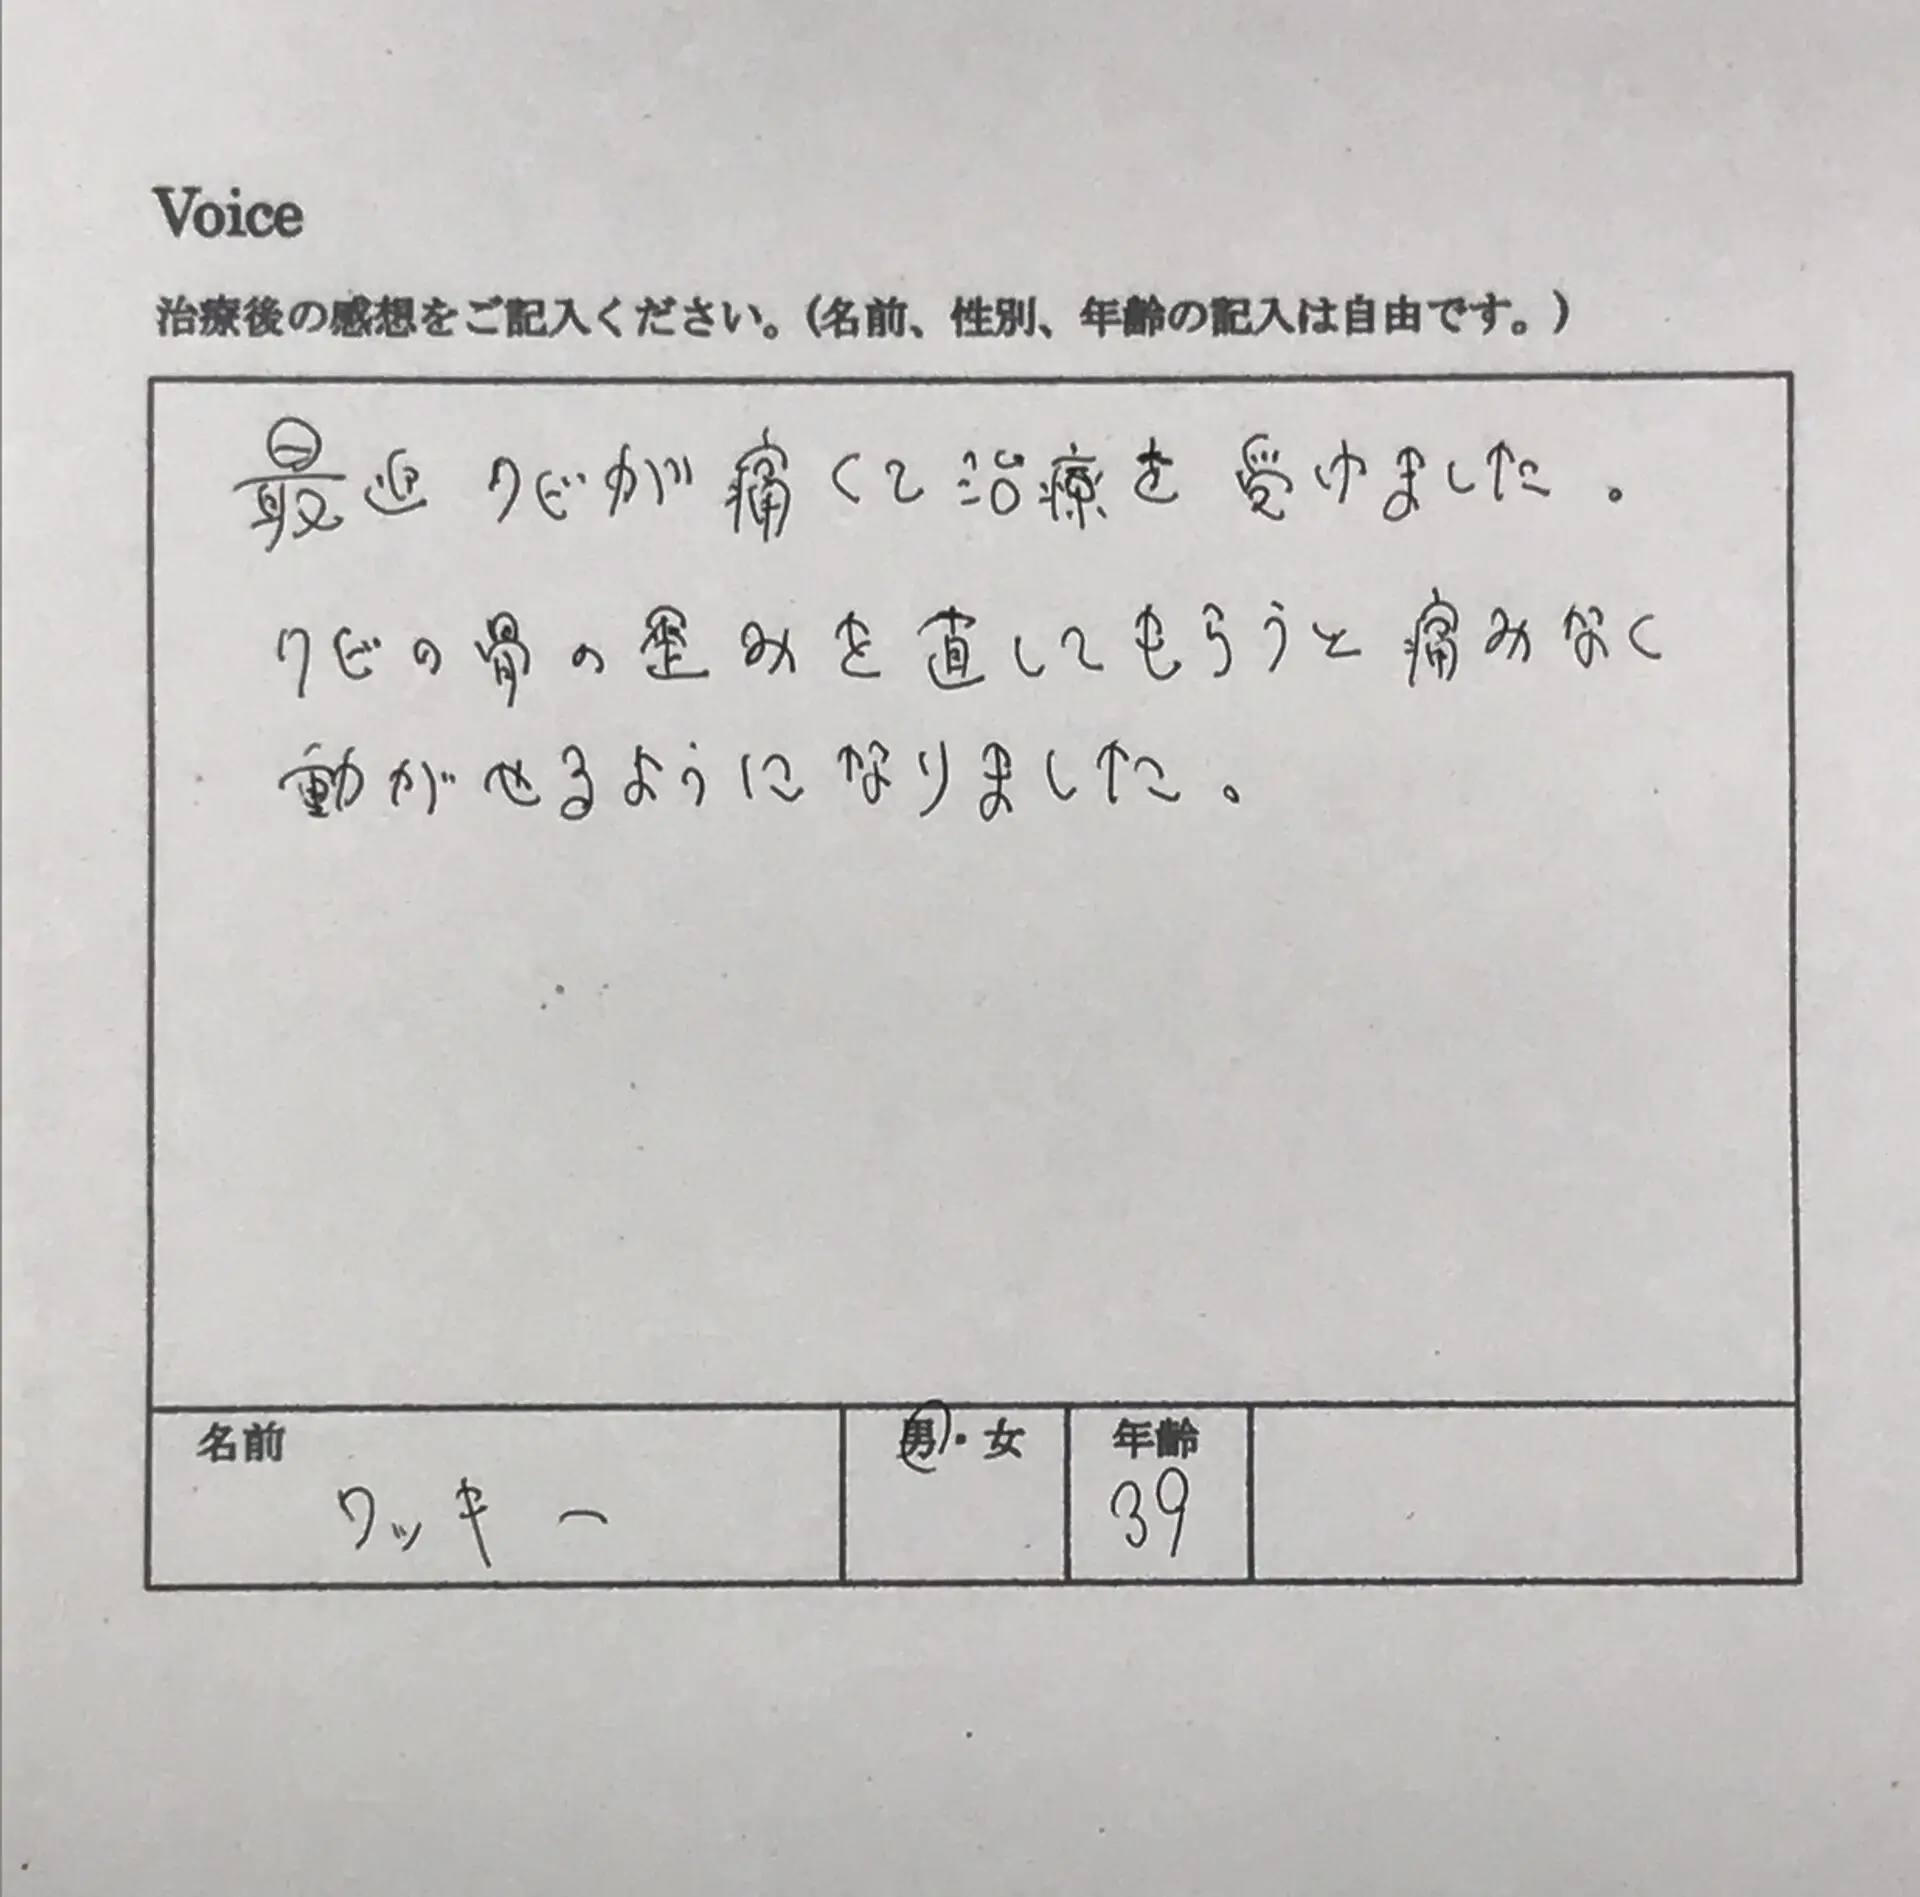 Voice
治療後の感想をご記入ください。（名前、性別、年齢の記入は自由です。）
最近 クビが痛くて治療を受けました。
クビの骨の歪みを直してもらうと痛みなく
動がせるようになりました。
名前 男・女 年齢
ワッキー 39